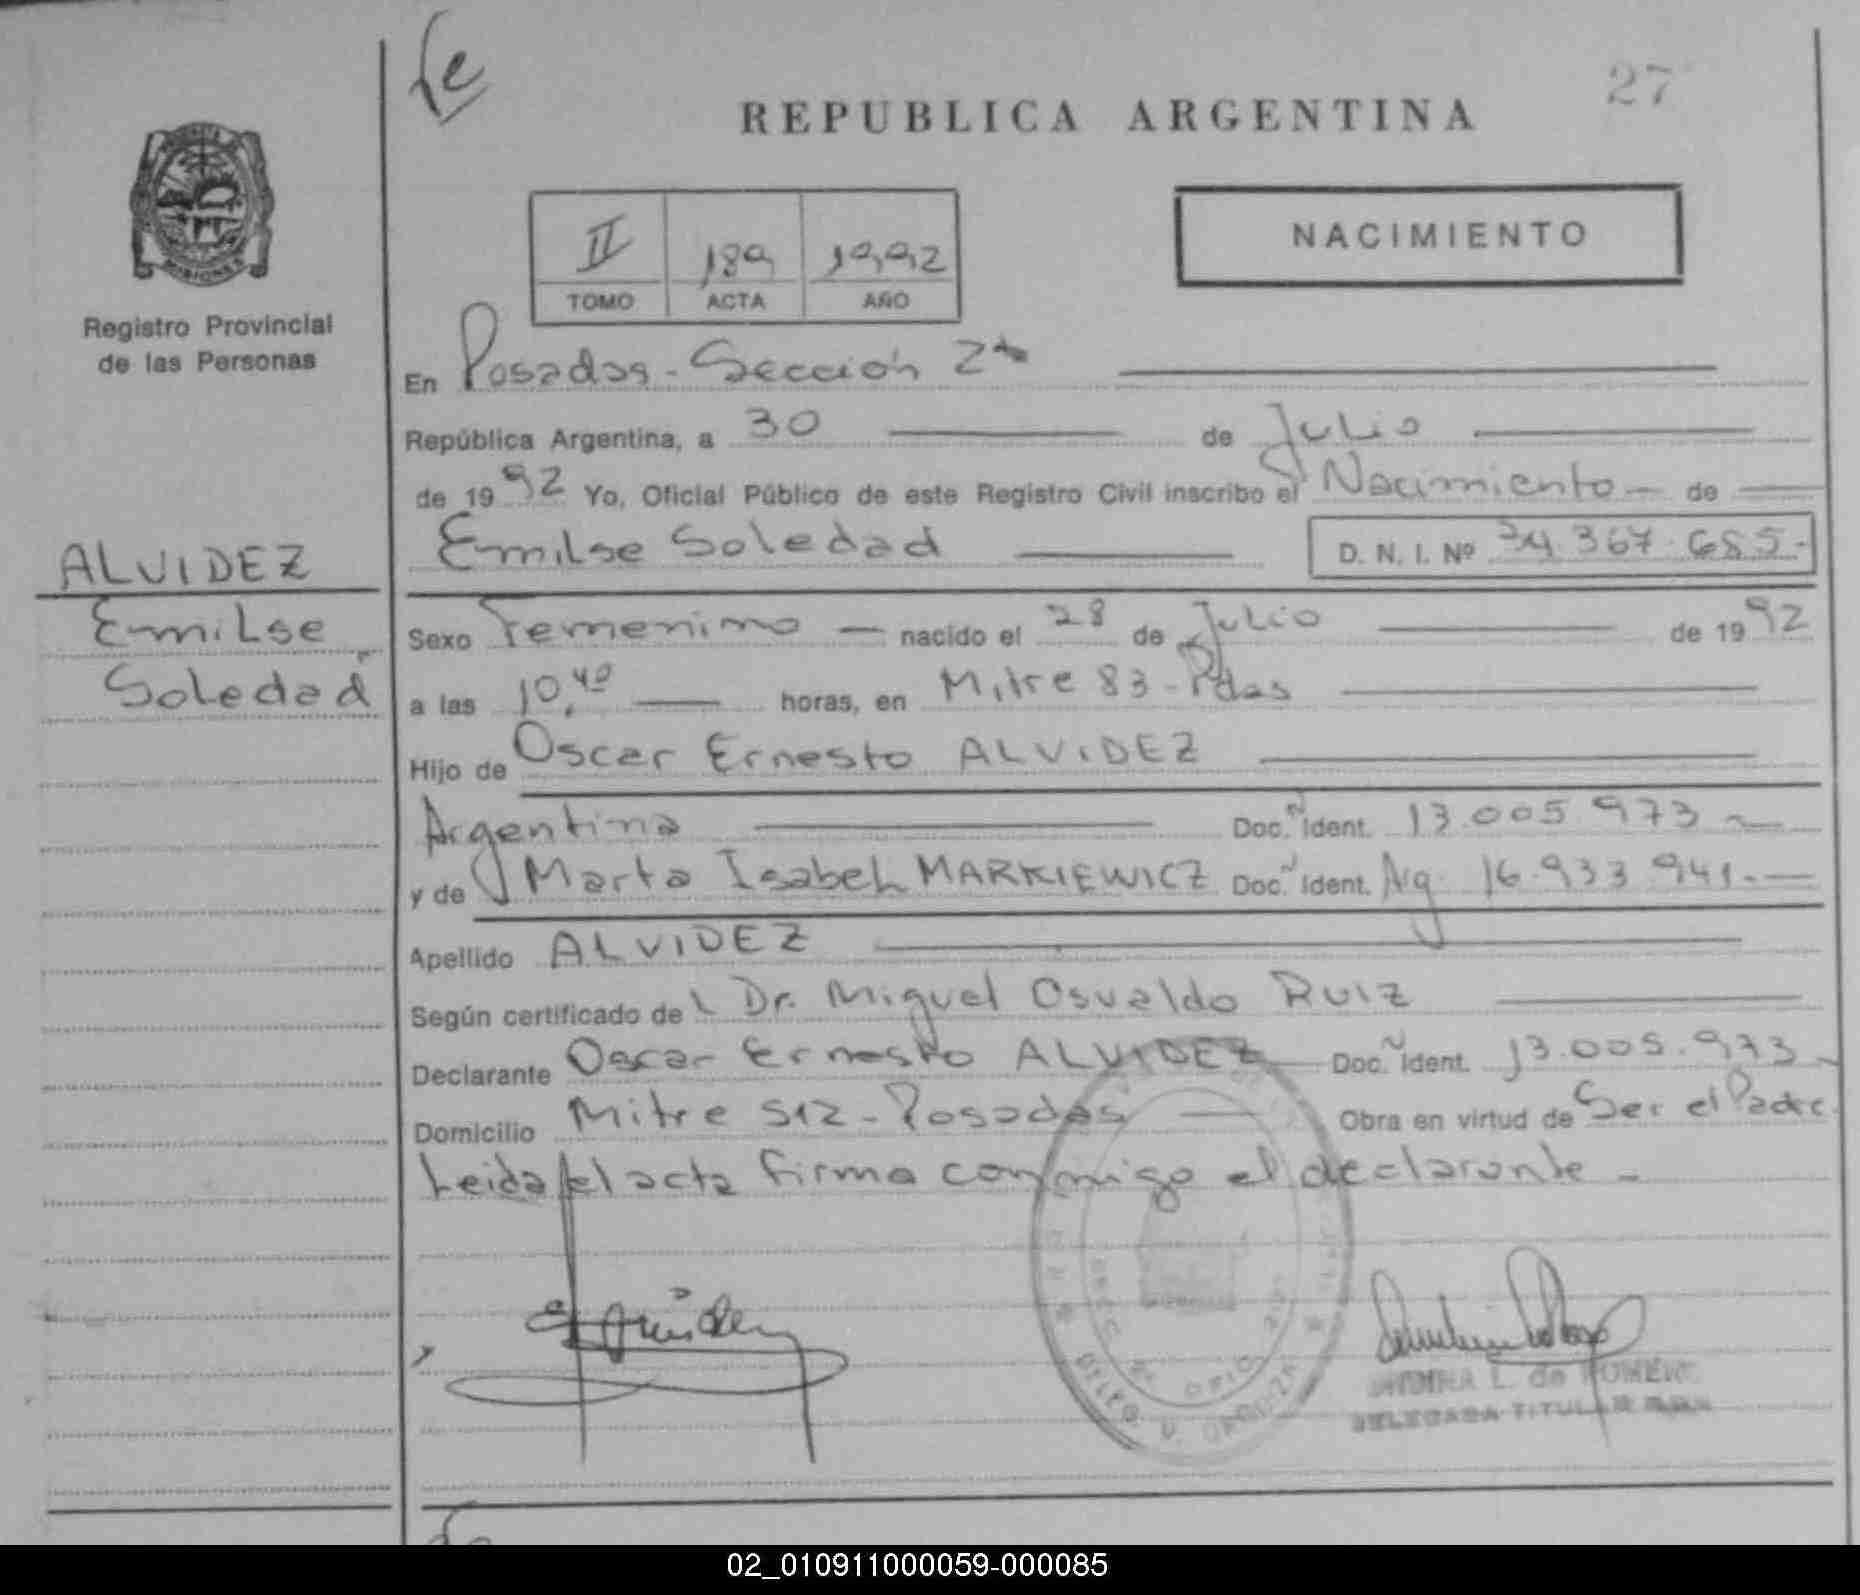 27
REPUBLICA ARGENTINA
MISIONES
Registro Provincial
de las Personas
II 189 1992
TOMO ACTA AÑO
NACIMIENTO
En Posadas - Sección 2da
República Argentina, a 30 de Julio
de 1992 Yo, Oficial Público de este Registro Civil inscribo el Nacimiento - de
Emilse Soledad D. N. I. Nº 34.367.685.-
ALVIDEZ
Emilse
Soledad
Sexo Femenino - nacido el 28 de Julio de 1992
a las 10,40 horas, en Mitre 83 - Pdas
Hijo de Oscar Ernesto ALVIDEZ
Argentina Doc. Ident. 13.005.973
y de Marta Isabel MARKIEWICZ Doc. Ident. Arg. 16.933.941.-
Apellido ALVIDEZ
Según certificado del Dr. Miguel Osvaldo RUIZ
Declarante Oscar Ernesto ALVIDEZ Doc. Ident. 13.005.973
Domicilio Mitre 512 - Posadas Obra en virtud de Ser el Padre.
Leida el acta firma conmigo el declarante -
L. de ROMERO
DELEGADA TITULAR
02_010911000059-000085